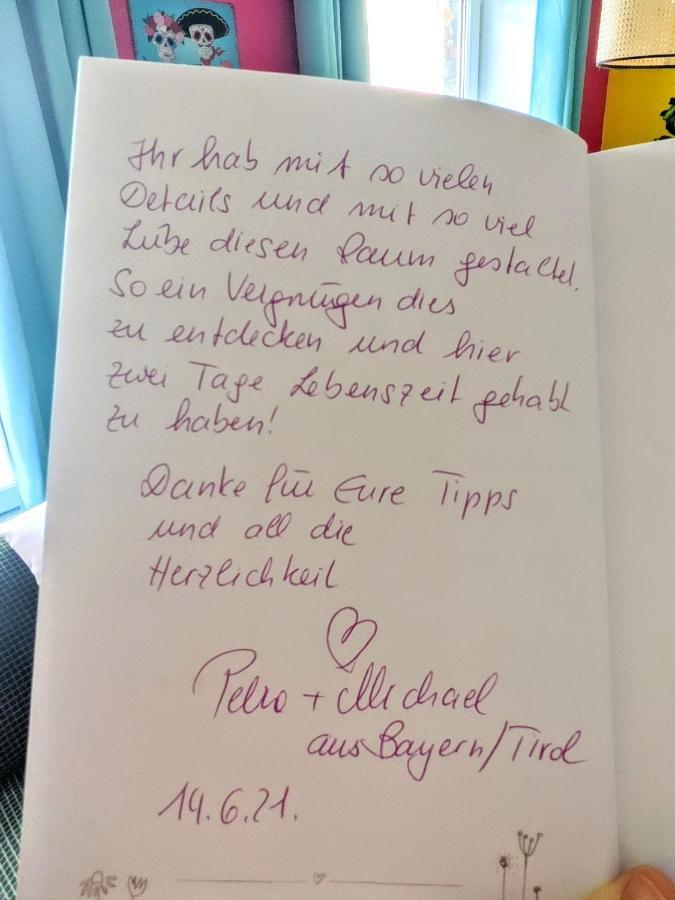 Ihr hab mit so vielen
Details und mit so viel
Liebe diesen Raum gestaltet.
So ein Vergnügen dies
zu entdecken und hier
zwei Tage Lebenszeit gehabt
zu haben!
Danke für Eure Tipps
und all die
Herzlichkeit
+ Michael
aus Bayern/Tirol
14.6.21.